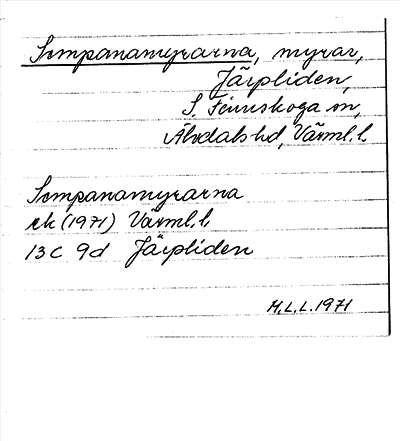 Sompanamyrarna, myrar,
Järpliden,
S. Finnskoga sn,
Älvdals hd, Värml. l.
Sompanamyrarna
ek (1971) Värml. l.
13C 9d Järpliden
M.L.L. 1971